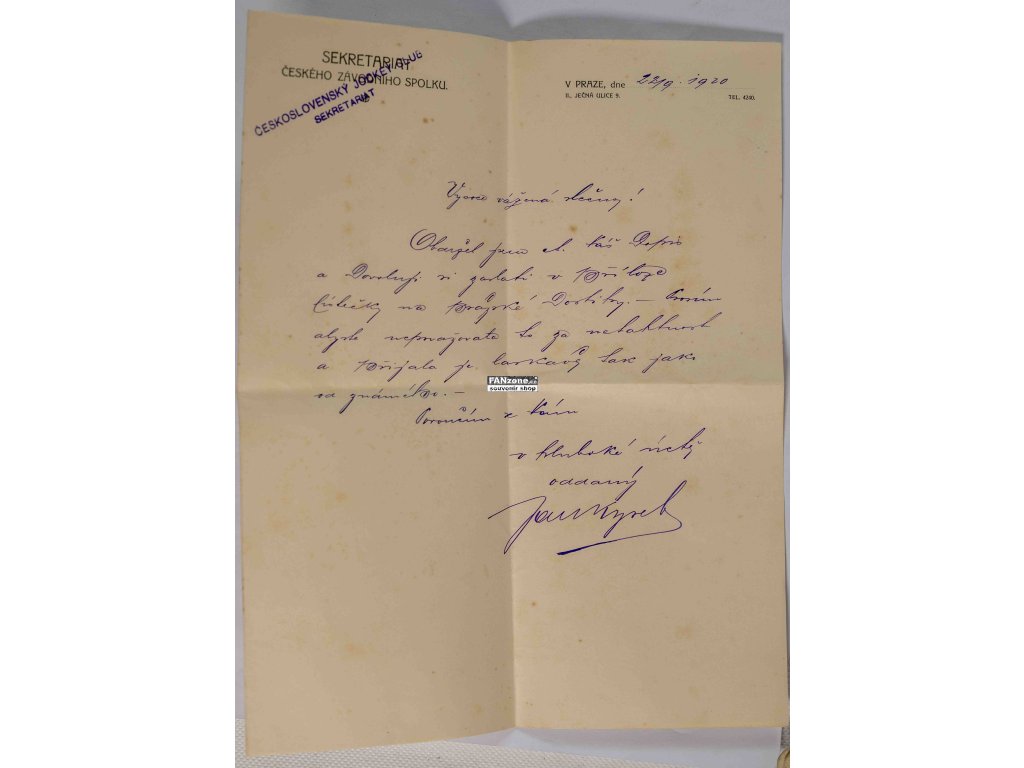 SEKRETARIAT
ČESKÉHO ZÁVODNÍHO SPOLKU.
ČESKOSLOVENSKÝ JOCKEY CLUB
SEKRETARIAT
V PRAZE, dne 22/9. 1920
II., JEČNÁ ULICE 9.
TEL. 4240.
Vysoce vážená slečno!
Obdržel jsem ct. Váš Dopis
a Dovoluji si zaslati v Příloze
lístečky na Pražské Dostihy. — Prosím
abyste nepovažovala to za netaktnost
a Přijala je laskavě tak jako
od známého. —
Poroučím se Vám
v hluboké úctě
oddaný
Jan
FANzone.cz
souvenir shop